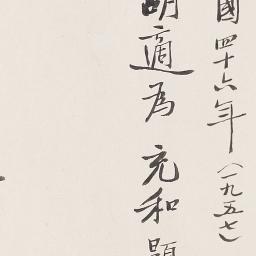 國四十六年（一九五七）
胡適為充和題